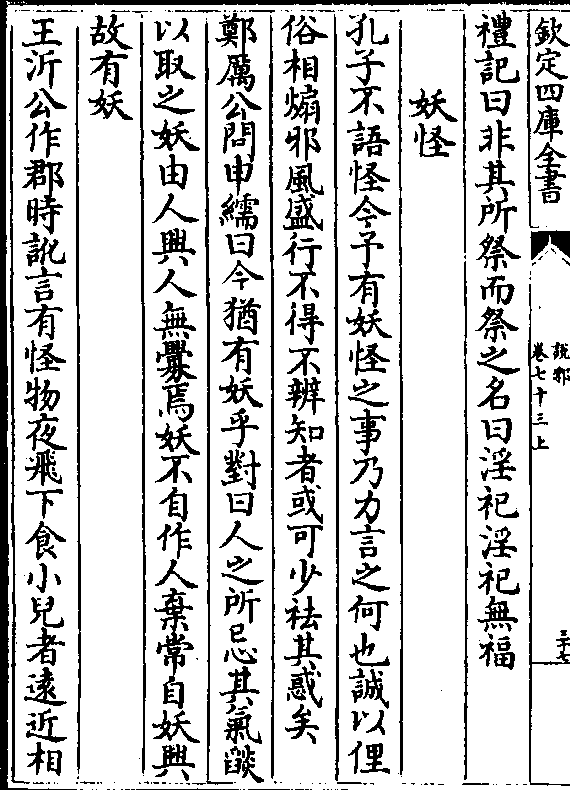 欽定四庫全書
說郛
卷七十三上
三十七
禮記曰非其所祭而祭之名曰淫祀淫祀無福
妖怪
孔子不語怪今予有妖怪之事乃力言之何也誠以俚
俗相煽邪風盛行不得不辨知者或可少祛其惑矣
鄭厲公問申繻曰今猶有妖乎對曰人之所忌其氣燄
以取之妖由人興人無釁焉妖不自作人棄常自妖興
故有妖
王沂公作郡時訛言有怪物夜飛下食小兒者遠近相